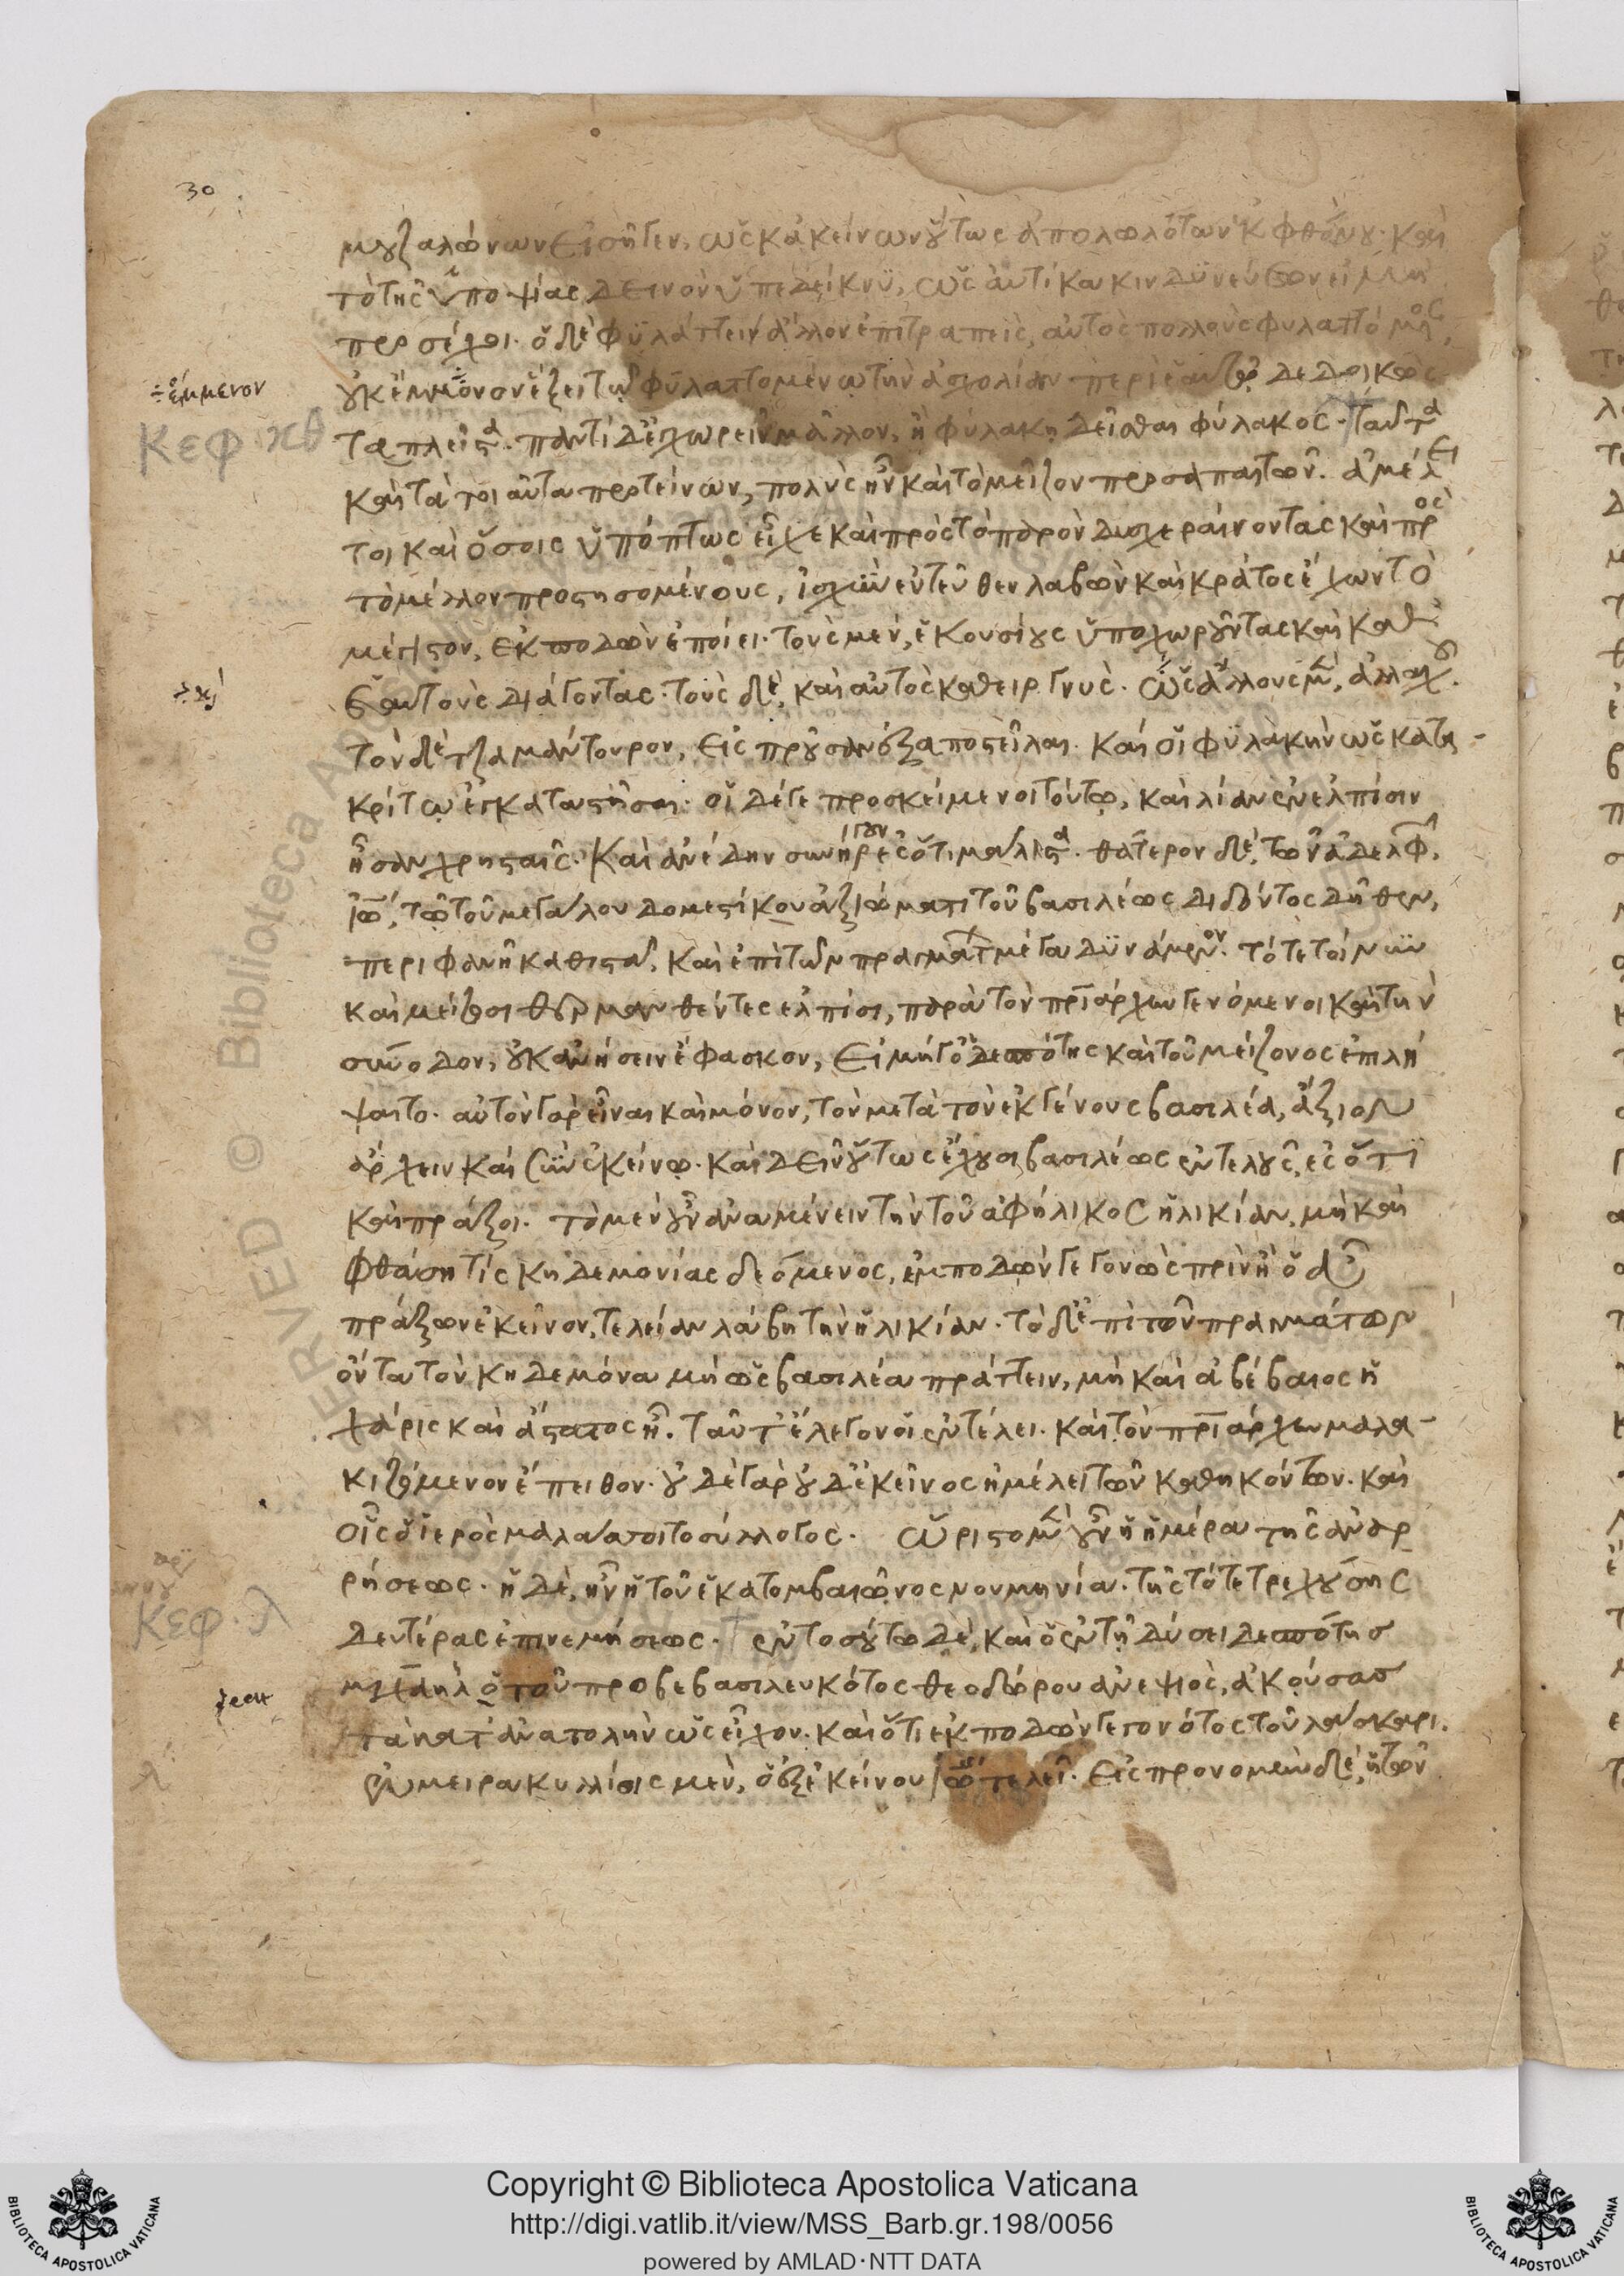 30
μουζαλώνων εἰσῆγεν, ὡς κἀκείνων οὕτως ἀπολωλότων ἐκ φθόνου. καὶ
τὸ τῆς ὑποψίας δεινὸν ὑπεδείκνυ, ὡς αὐτίκα κινδυνεύσων εἰ μὴ
προσέχοι. ὁ δὲ φυλάττειν ἄλλον ἐπιτραπεὶς, αὐτὸς πολλοὺς φυλαττόμενος,
÷ ἔμμενον
οὐκ ἔμμονον ἕξει τῷ φυλαττομένῳ τὴν ἀσχολίαν περὶ ἑαυτῷ δεδοικὼς
Κεφ κθ
τὰ πλεῖστα. παντὶ δ' ἐγχωρεῖν μᾶλλον, ἢ φύλακι δεῖσθαι φύλακος. ταῦτα
καὶ τὰ τοιαῦτα προτείνων, πολὺς ἦν καὶ τὸ μεῖζον προσαπαιτῶν. ἀμέλει
τοι καὶ ὅσοις ὑπόπτως εἶχε καὶ πρὸς τὸ παρὸν δυσχεραίνοντας καὶ πρὸς
τὸ μέλλον προςησομένους, ἰσχὺν ἐντεῦθεν λαβὼν καὶ κράτος ἔχων τὸ
μέγιστον, ἐκποδὼν ἐποίει. τοὺς μὲν, ἑκουσίους ὑποχωροῦντας καὶ καθ'
ἑαυτοὺς διάγοντας. τοὺς δὲ, καὶ αὐτὸς καθειργνύς. ὡς ἄλλους μὲν, ἀλλαχοῦ.
τὸν δὲ τζαμάντουρον, εἰς προῦσαν ἐξαποστεῖλαι. καί οἱ φυλακὴν ὡς κατα-
κρίτῳ ἐγκαταστῆσαι. οἱ δέ γε προσκείμενοι τούτῳ, καὶ λίαν ἐν ἐλπίσιν
ἦσαν χρησταῖς. καὶ ἀνέδην συνήργουν ἐς ὅτι μάλιστα. θάτερον δὲ, τῶν ἀδελφῶν
Ἰω, τῷ τοῦ μεγάλου δομεστίκου ἀξιώματι τοῦ βασιλέως διδόντος δῆθεν,
περιφανῆ καθιστᾷ. καὶ ἐπὶ τῶν πραγμάτων μέγα δυνάμενον. τότε τοίνυν
καὶ μείζοσι θερμανθέντες ἐλπίσι, παρὰ τὸν πριάρχην γενόμενοι καὶ τὴν
σύνοδον, οὐκ ἀνήσειν ἔφασκον, εἰ μή γ' ὁ δεσπότης καὶ τοῦ μείζονος ἐπιλή
ψαιτο. αὐτὸν γὰρ εἶναι καὶ μόνον, τὸν μετὰ τὸν ἐκ γένους βασιλέα, ἄξιον
ἄρχειν καὶ σὺν ἐκείνῳ. καὶ δεῖν οὕτως ἔχουσι βασιλέως ἐντελοῦς, ἐς ὅτι
καὶ πράξοι. τὸ μὲν οὖν ἀναμένειν τὴν τοῦ ἀφήλικος ἡλικίαν, μὴ καὶ
φθάσῃ τίς κηδεμονίας δεόμενος, ἐμποδὼν γεγονὼς πρὶν ἢ ὁ
πράξων ἐκεῖνον, τελείαν λάβῃ τὴν ἡλικίαν. τὸ δ' ἐπὶ τῶν πραγμάτων
ὄντα τὸν κηδεμόνα μὴ ὡς βασιλέα πράττειν, μὴ καὶ ἀβέβαιος ἡ
χάρις καὶ ἄστατος ᾖ. ταῦτ' ἔλεγον οἱ ἐν τέλει. καὶ τὸν πριάρχην μαλα-
κιζόμενον ἔπειθον. οὐδὲ γὰρ οὐδ' ἐκεῖνος ἠμέλει τῶν καθηκόντων. καὶ
οἷς ὁ ἱερὸς μάλα πείθοιτο σύλλογος. ὥριστο μὲν οὖν ἡ ἡμέρα τῆς ἀναρ
ρήσεως. ἡ δὲ, ἦν ἡ τοῦ ἑκατομβαιῶνος νουμηνία. τῆς τότε τρεχούσης
Κεφ. λ
δευτέρας ἐπινεμήσεως. ἐν τοσούτῳ δὲ, καὶ ὁ ἐν τῇ δύσει δεσπότης
μιχαὴλ ὁ τοῦ προβεβασιλευκότος θεοδώρου ἀνεψιὸς, ἀκούσας
τὰ κατ' ἀνατολὴν ὡς εἶχον. καὶ ὅτι ἐκποδὼν γεγονότος τοῦ λασκαρι.
ἐν μειρακυλλίοις μὲν, ὁ ἐξ ἐκείνου Ἰω τελεῖ. εἰς προνομὴν δὲ, ἡ τῶν
Copyright © Biblioteca Apostolica Vaticana
http://digi.vatlib.it/view/MSS_Barb.gr.198/0056
powered by AMLAD·NTT DATA
BIBLIOTECA APOSTOLICA VATICANA
BIBLIOTECA APOSTOLICA VATICANA